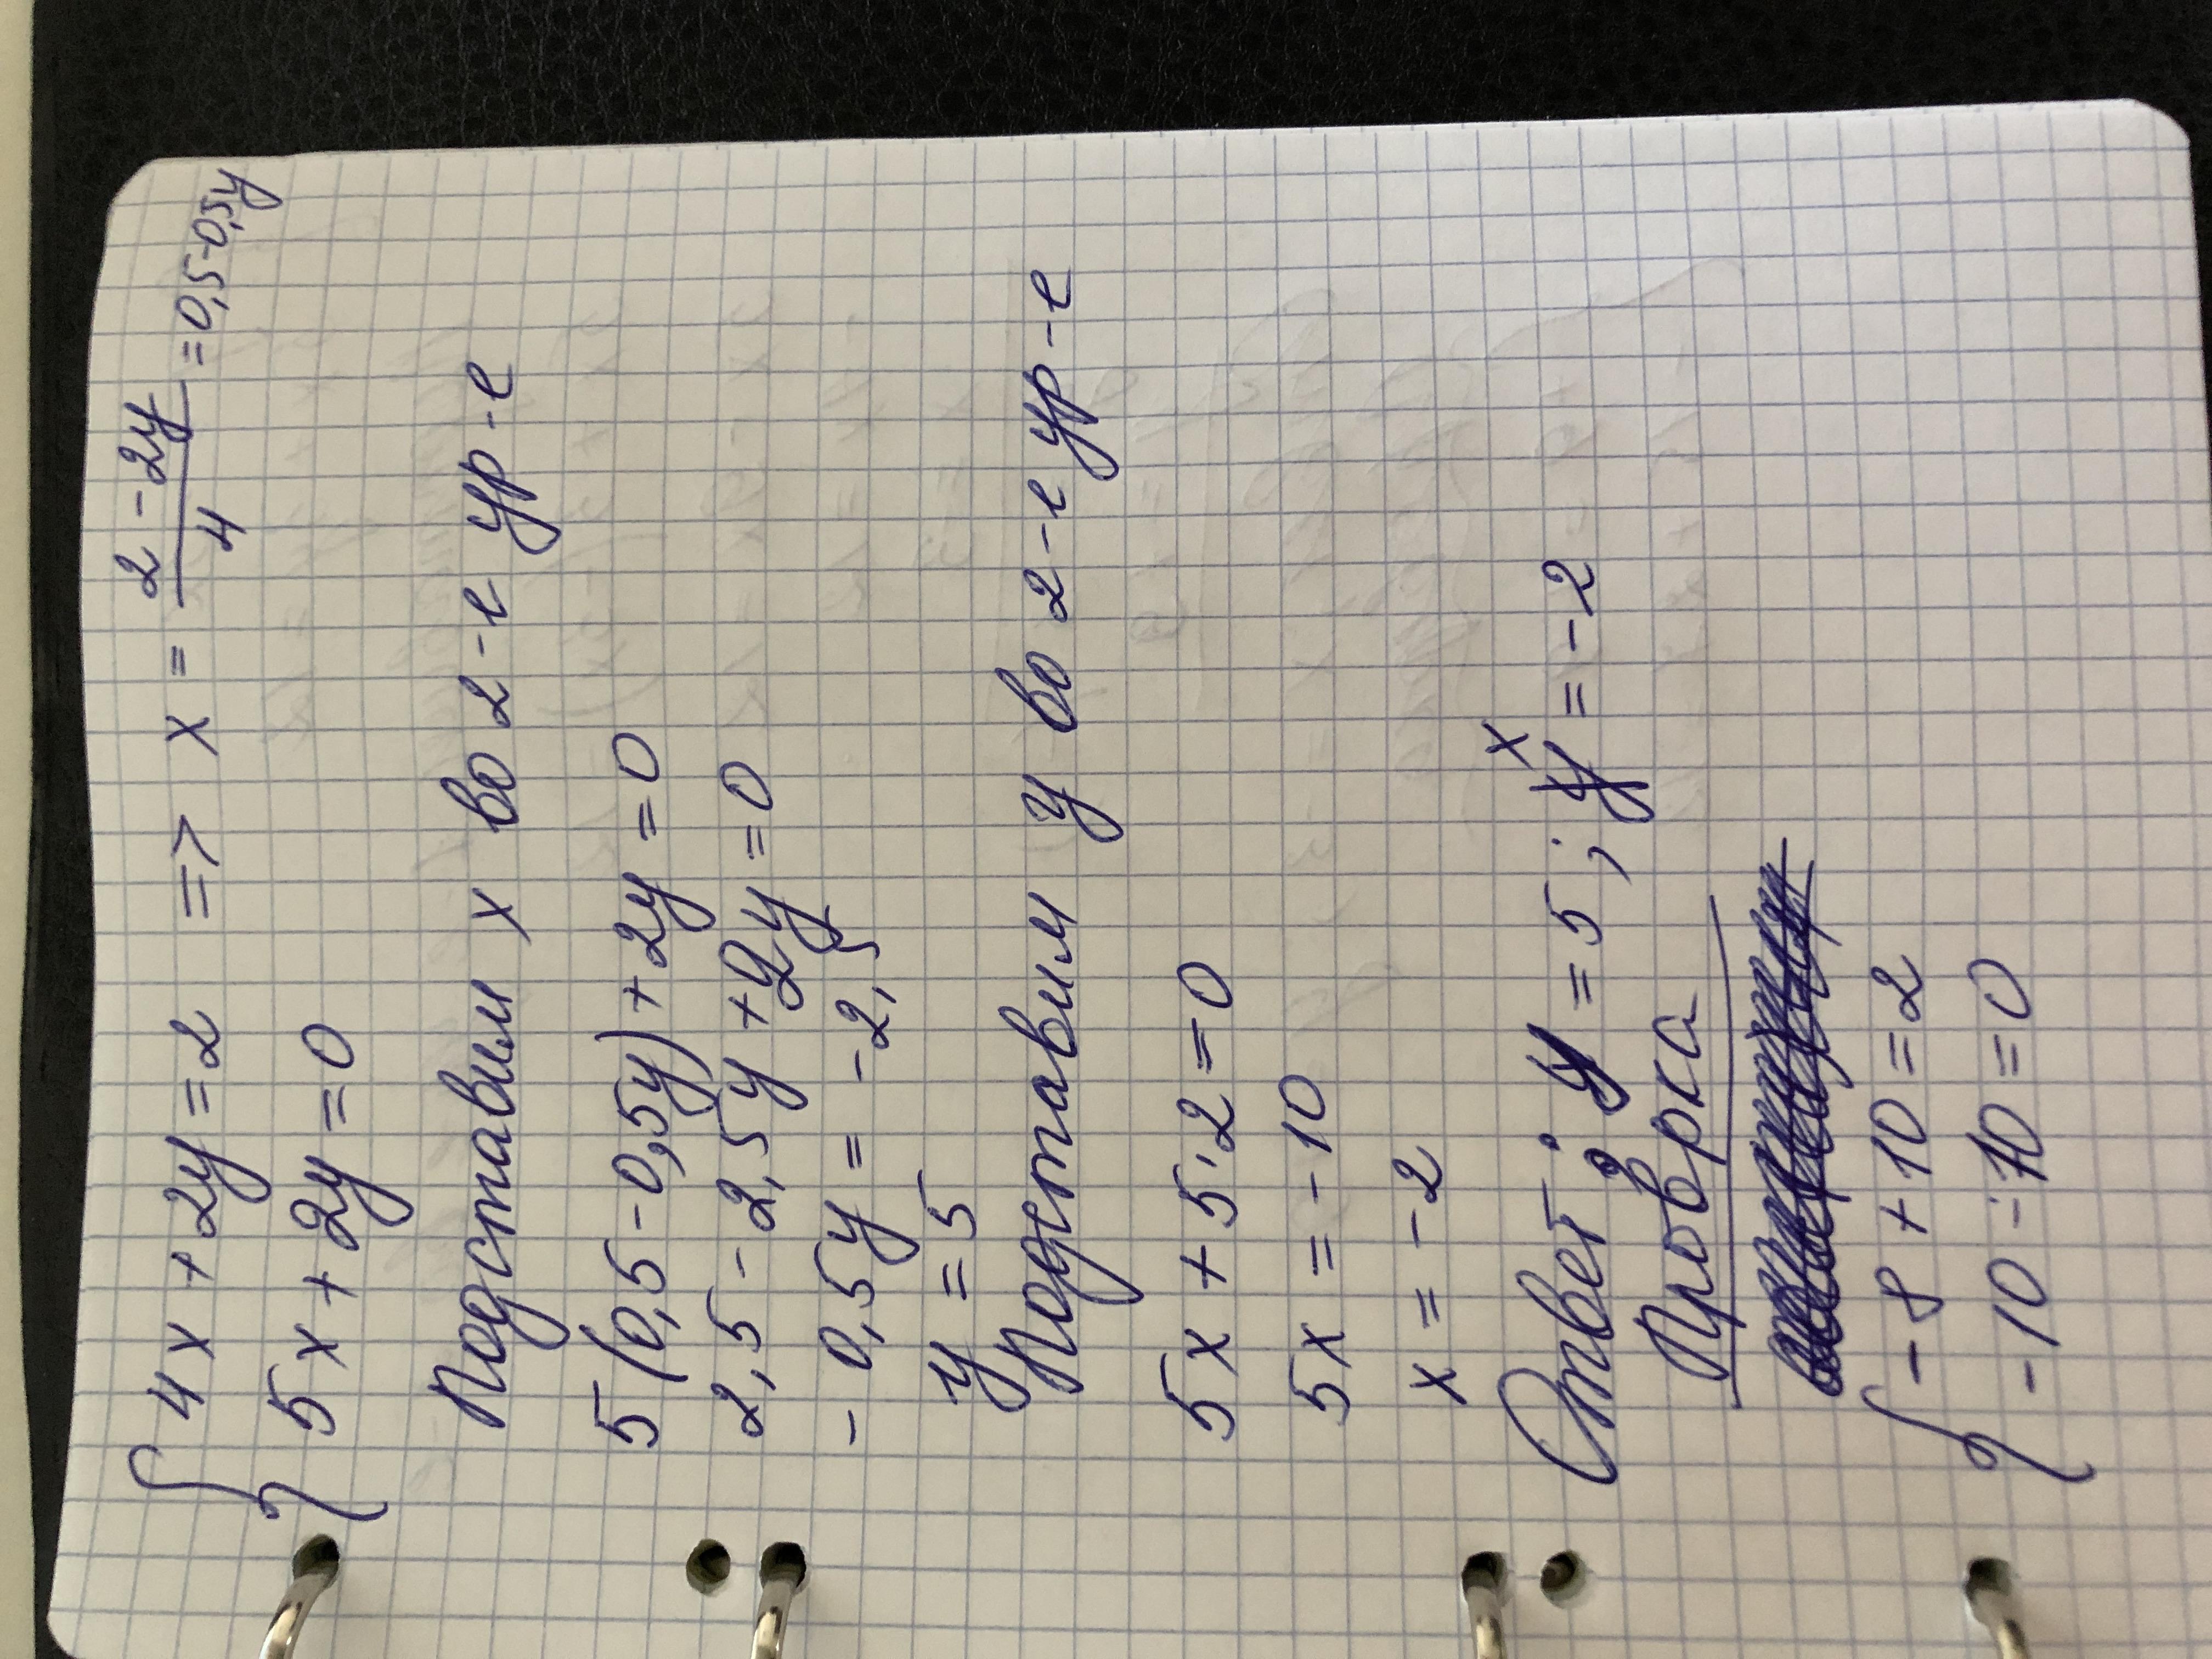 4x + 2y = 2 => x = (2 - 2y)/4 = 0,5-0,5y
5x + 2y = 0
Подставим x во 2-е ур-е
5(0,5-0,5y) + 2y = 0
2,5 - 2,5y + 2y = 0
- 0,5y = -2,5
y = 5
Подставим y во 2-е ур-е
5x + 5·2 = 0
5x = -10
x = -2
Ответ: y = 5; x = -2
Проверка
-8 + 10 = 2
-10 + 10 = 0